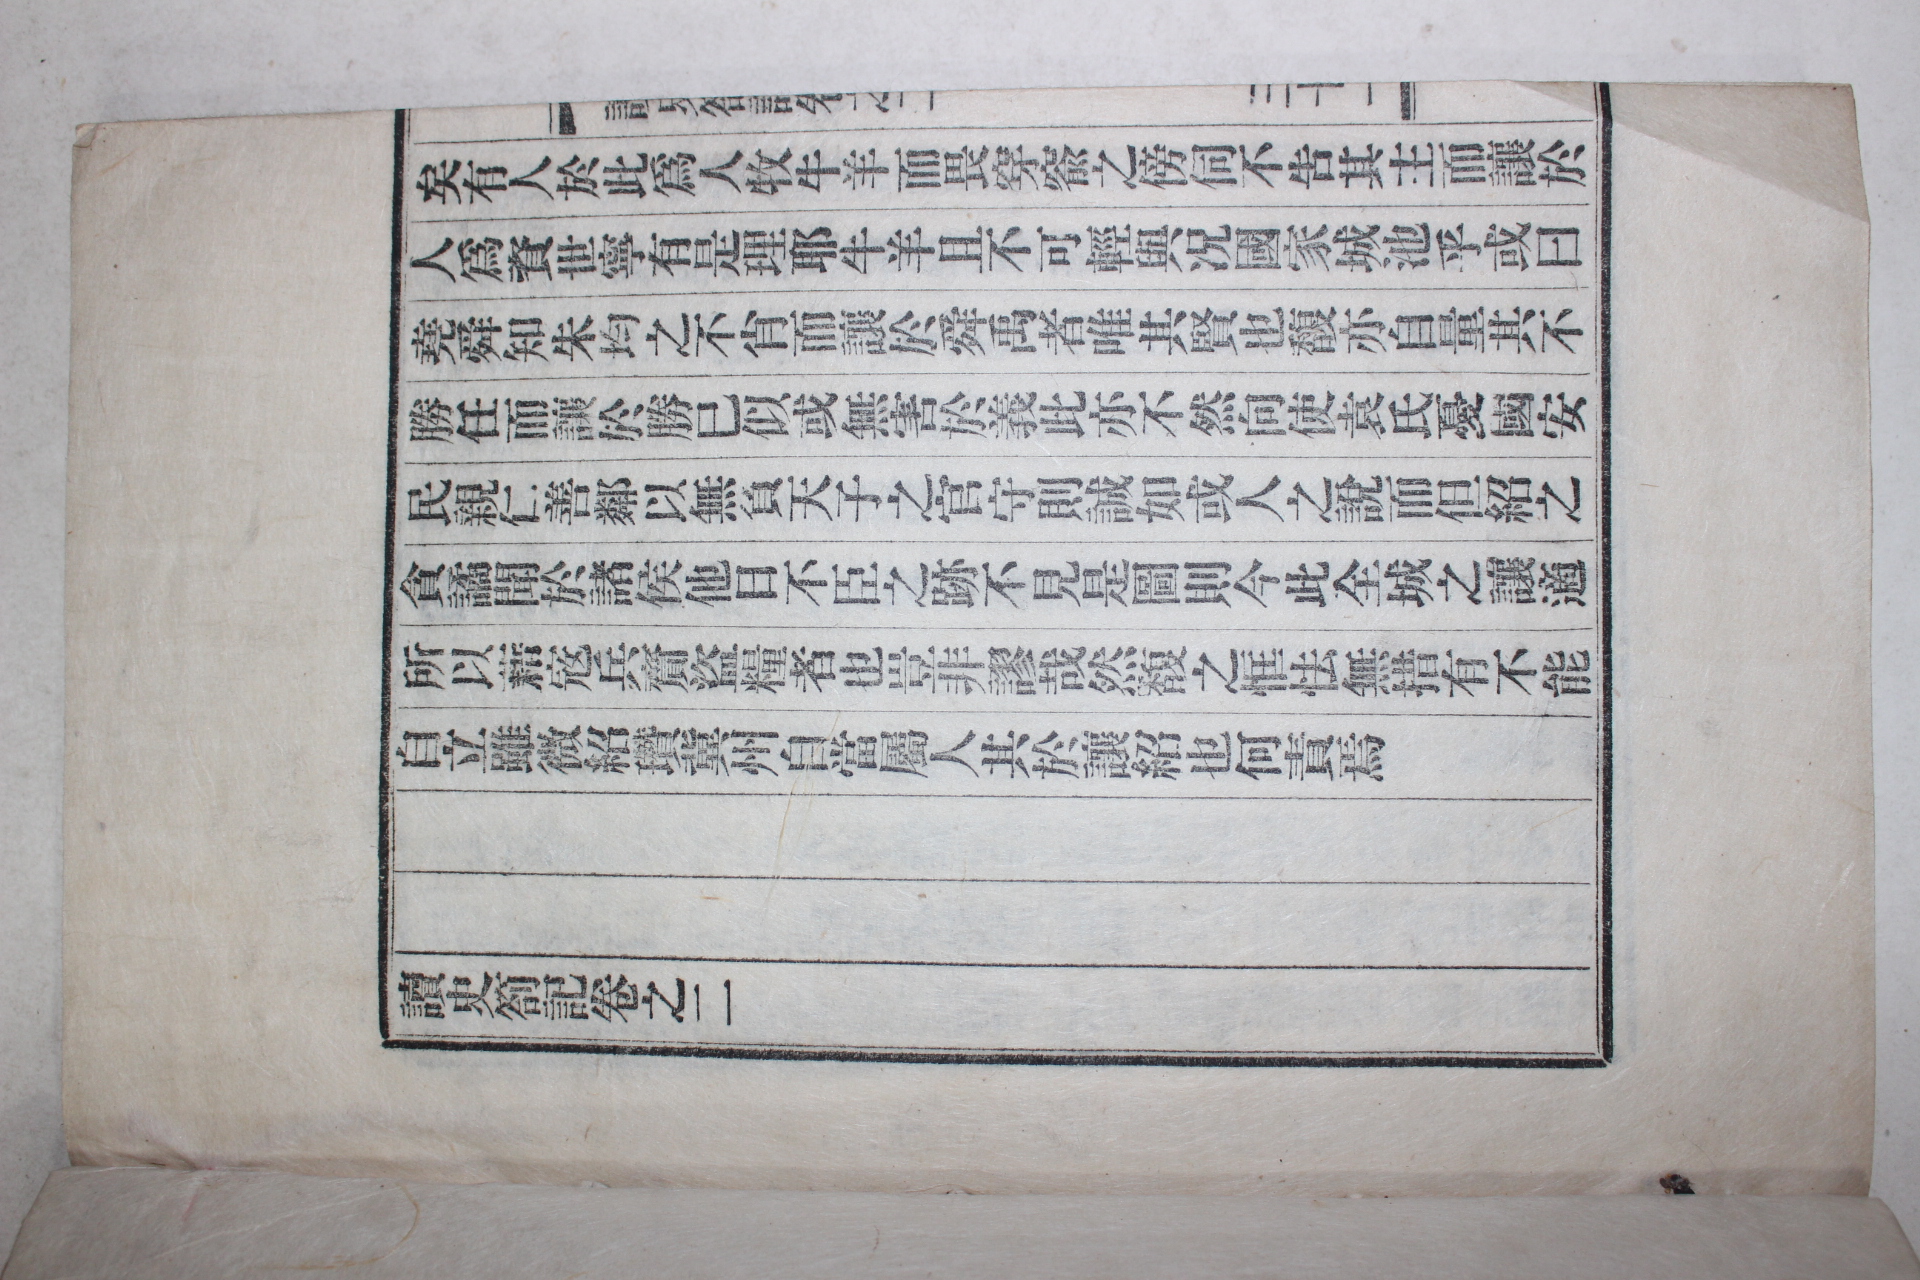 讀史箚記卷之二
三十一
矣有人於此爲人牧牛羊而畏穿窬之傍伺不告其主而讓於
人爲資世寧有是理耶牛羊且不可輕與况國家城池乎或曰
堯舜知朱均之不肖而讓於舜禹者唯其賢也馥亦自量其不
勝任而讓於勝已似或無害於義此亦不然向使袁氏憂國安
民親仁善鄰以無負天子之官守則誠如或人之說而但紹之
貪譎聞於諸侯他日不臣之跡不見是圖則今此全城之讓適
所以藉寇兵齎盜糧者也豈非謬哉然馥之恇怯無措有不能
自立雖微紹瓚冀州自當屬人其於讓紹也何責焉
讀史箚記卷之二